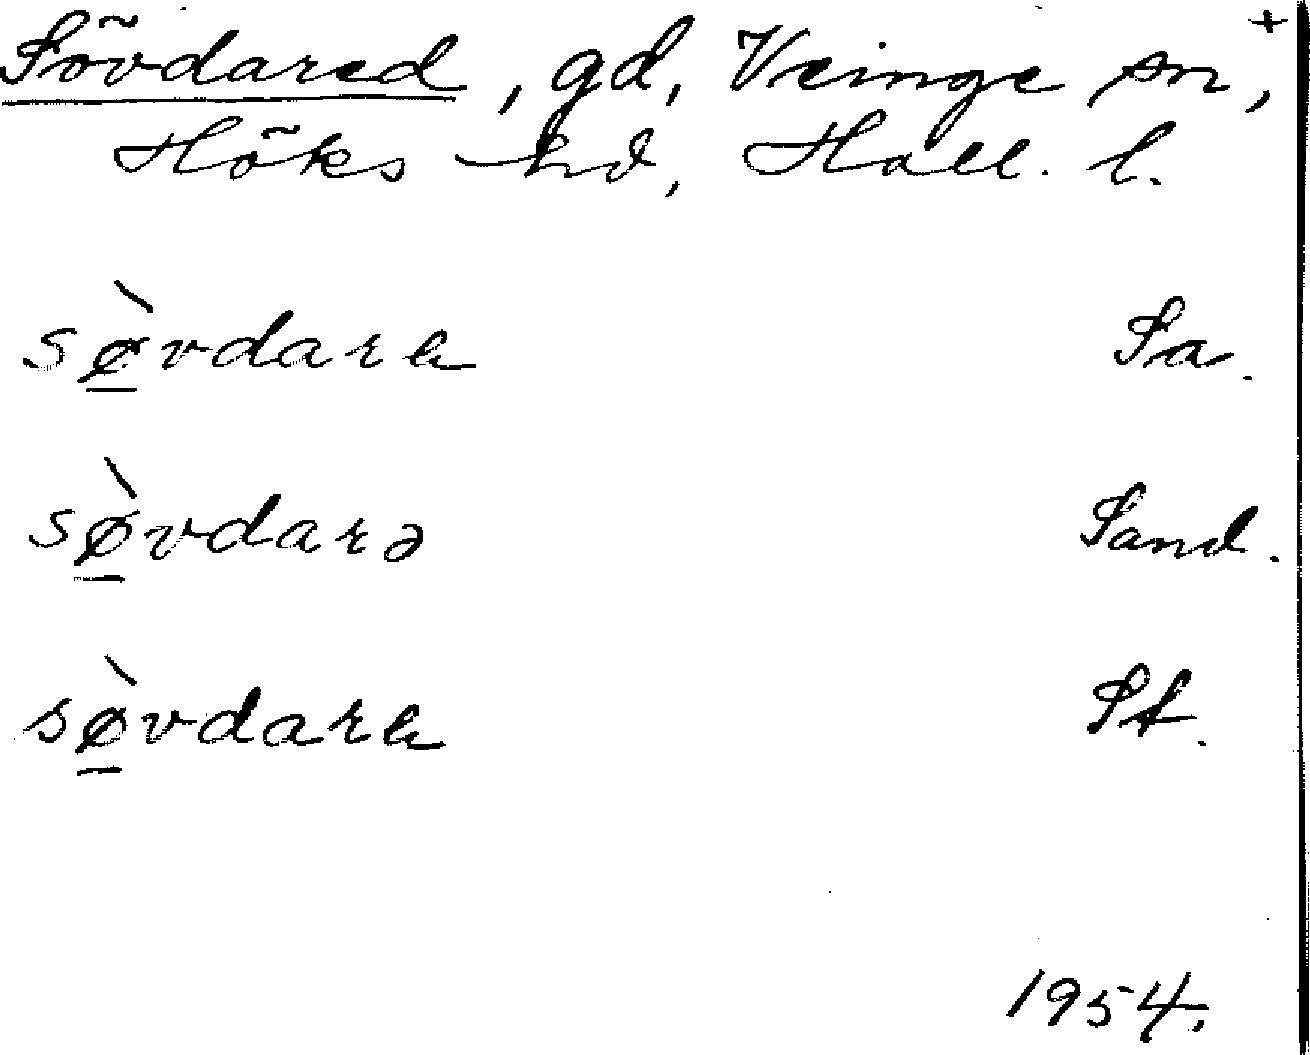 Sövdared, gd, Veinge sn, +
Höks hd, Hall. l.
sø̲̀vdarɐ Sa.
sø̲̀vdarə Sand.
sø̲̀vdarɐ St.
1954.